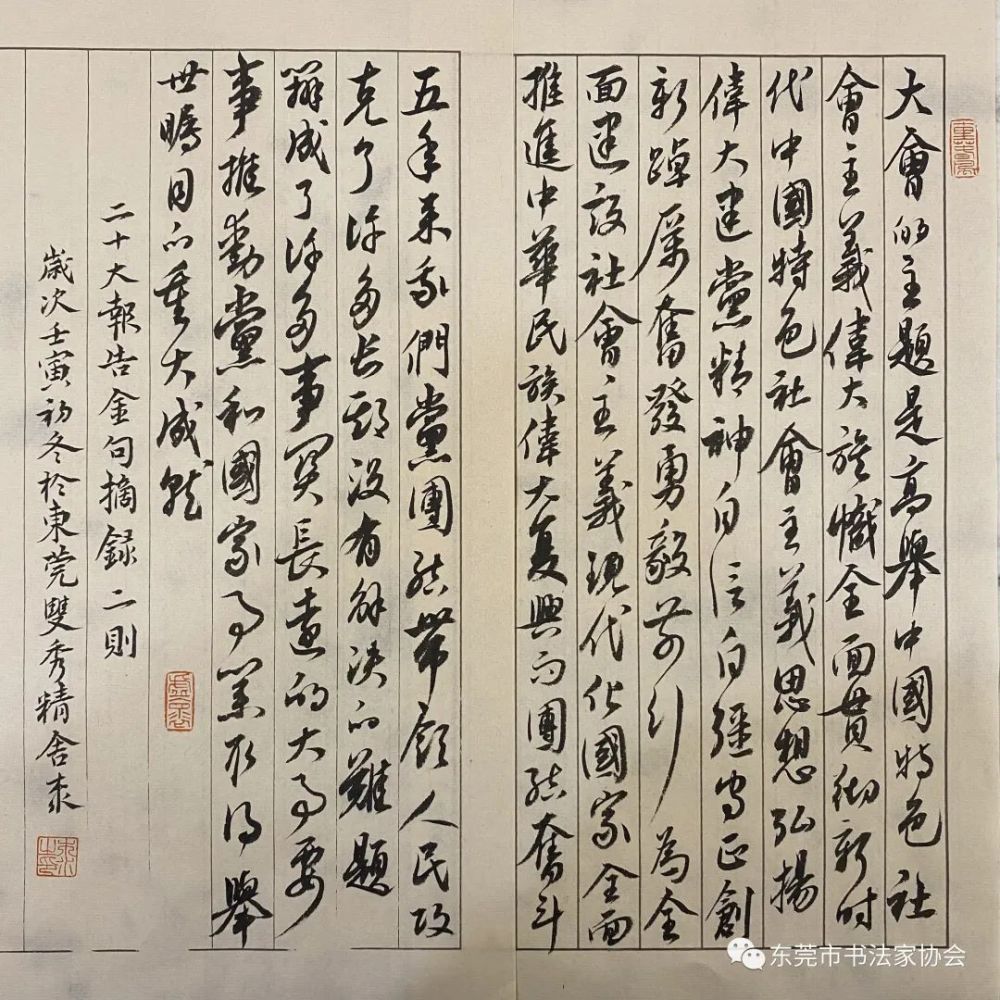 大會的主題是高舉中國特色社
會主義偉大旗幟全面貫彻新时
代中國特色社會主義思想弘揚
偉大建黨精神自信自彊守正創
新踔厲奮發勇毅前行為全
面建設社會主義現代化國家全面
推進中華民族偉大复興而團結奮斗
五年来我們黨團結帶領人民攻
克了許多长期没有解决的難題
辦成了許多事关長遠的大事要
事推動黨和國家事業取得舉
世矚目的重大成就
二十大報告金句摘録二則
歲次壬寅初冬於東莞雙秀精舍
东莞市书法家协会